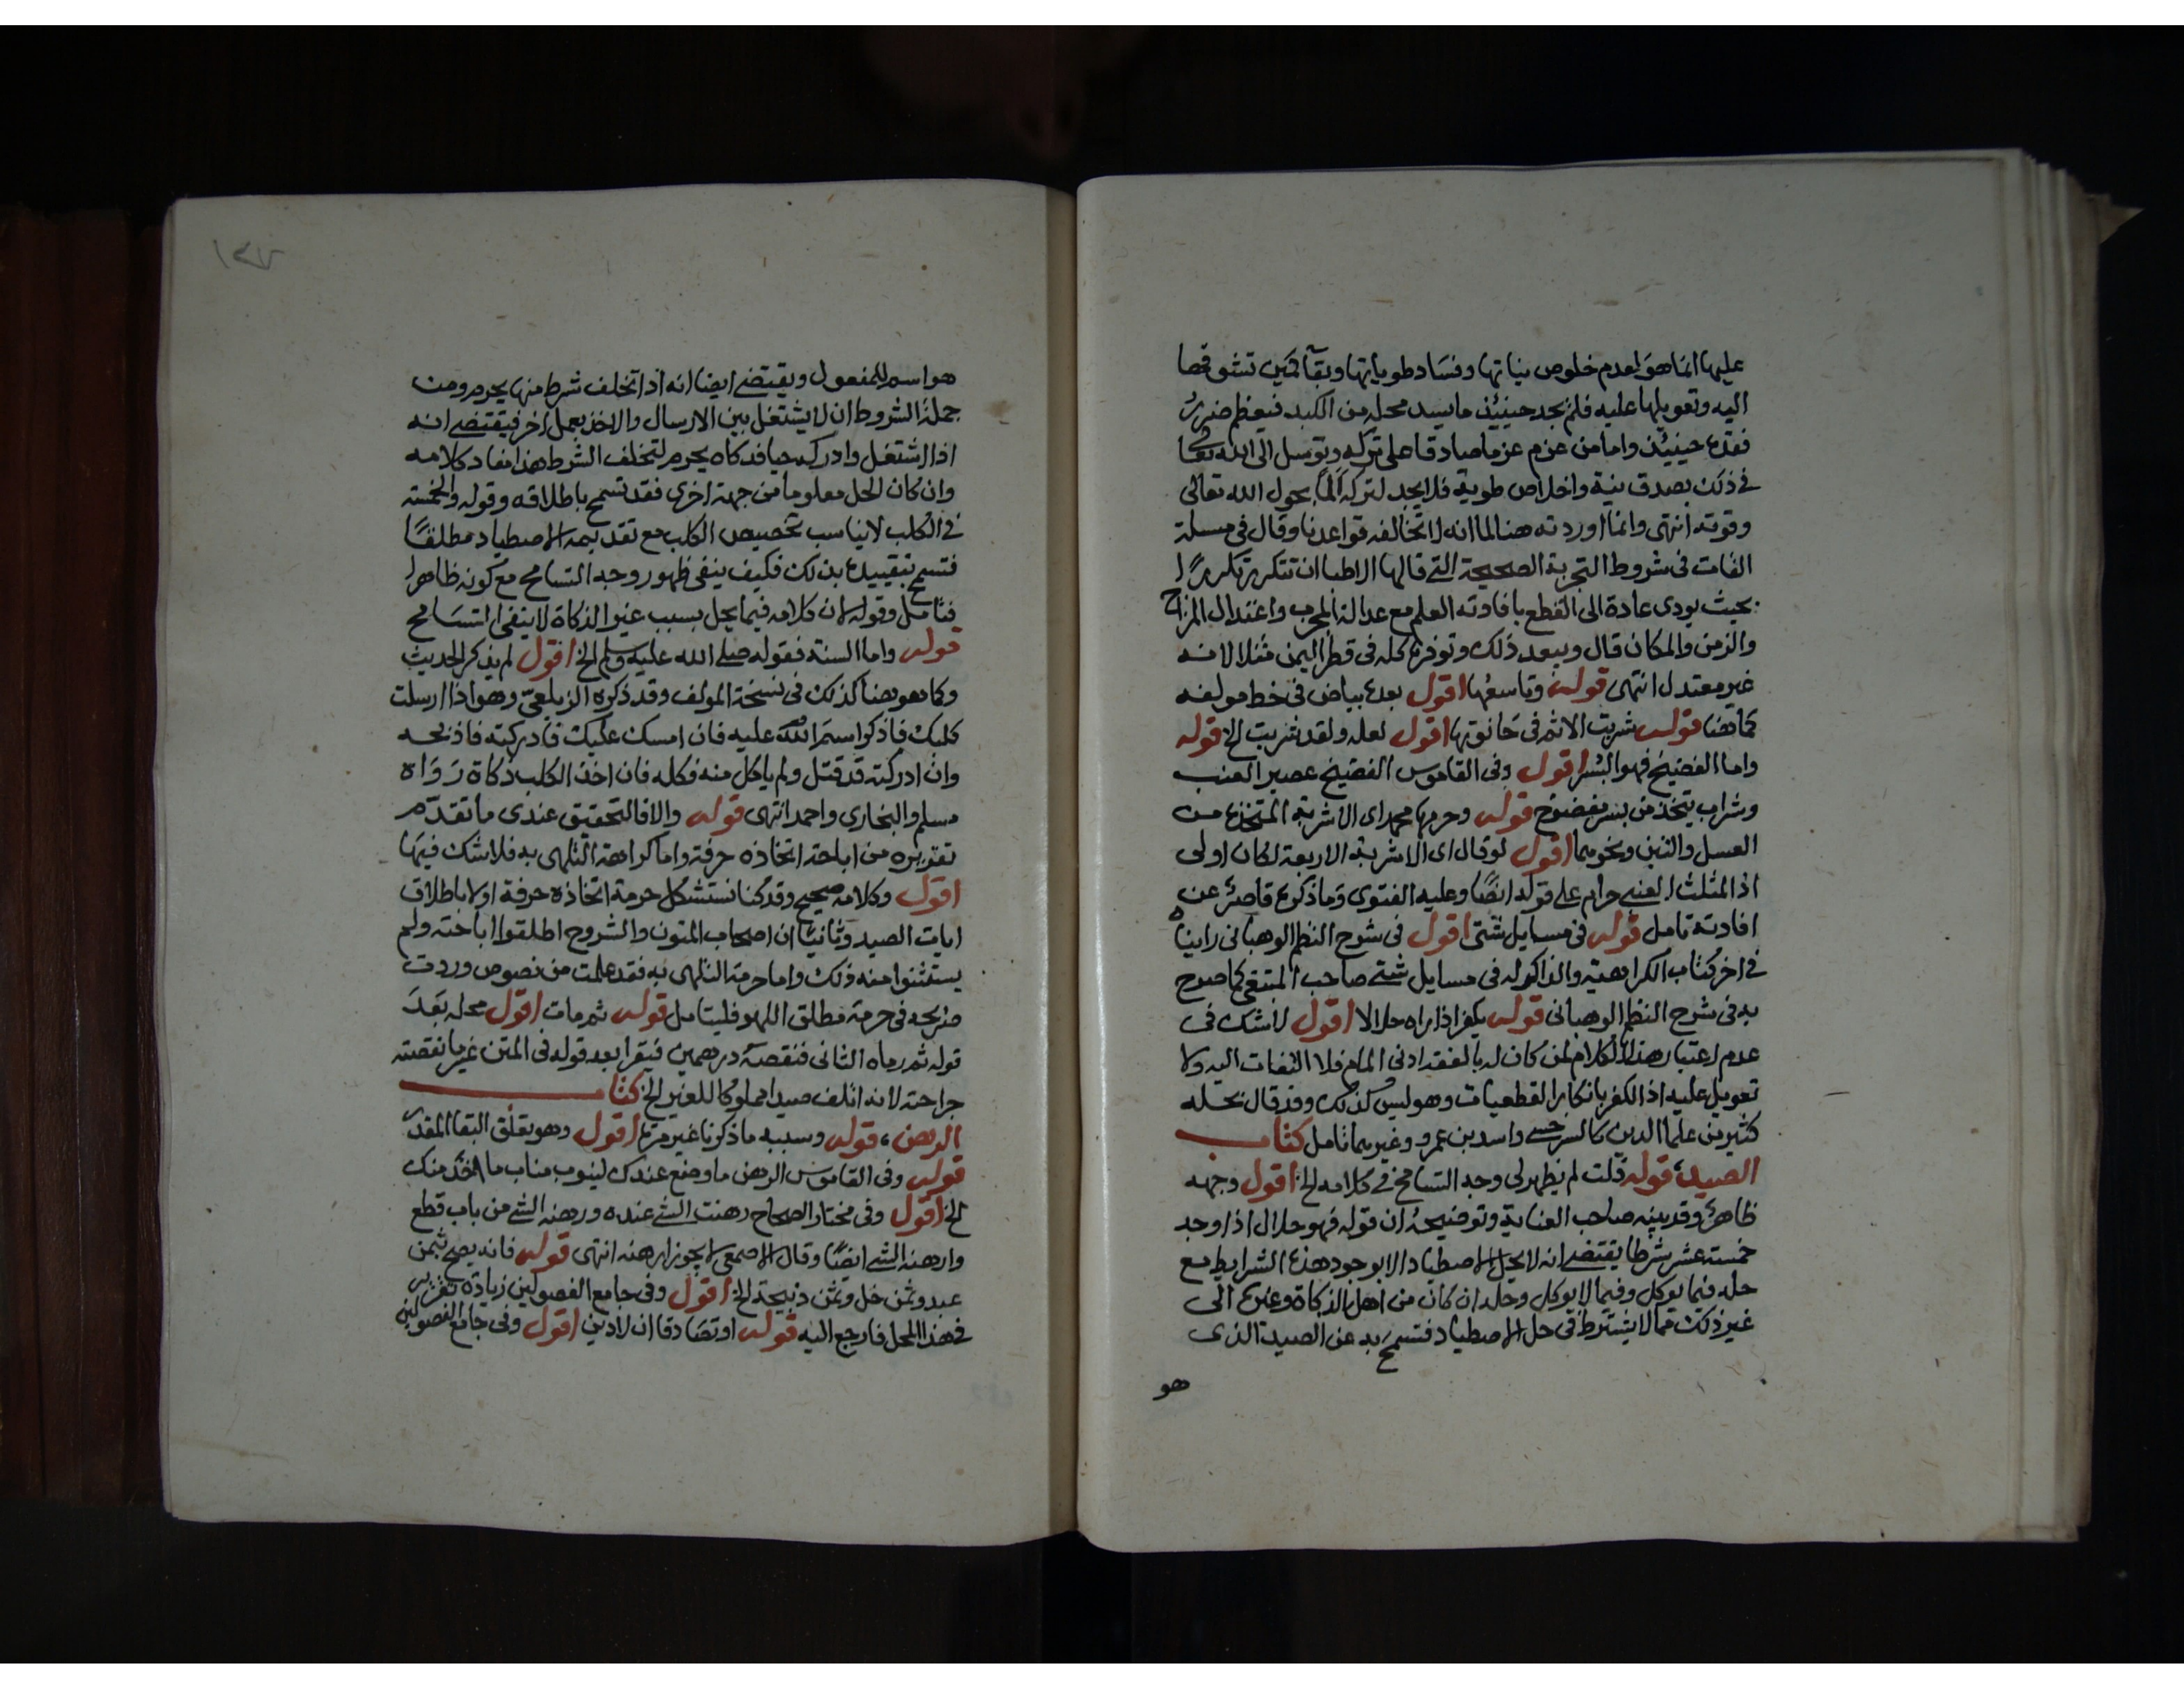 عليها انما هو لعدم خلوص نياتها وفساد طوياتها وبقا كمين تشوقها
اليه وتعويلها عليه فلم يجد حينئذ ما يسد محله من الكبد فيعظم ضرر
فقده حينيذ واما من عزم عزما صادقا على تركه وتوسل الى الله تعا
في ذلك بصدق نية واخلاص طوية فلا يجد لتركه الما بحول الله تعالى
وقوته انتهى وانما اوردته هنا لما انه لا تخالفه قواعدنا وقال في مسلة
القات في شروط التجربة الصحيحة التي قالها الاطبا ان تتكرر تكررا
بحيث يودى عادة الى القطع بافادته العلم مع عدالة المجرب واعتدال المزاج
والزمن والمكان قال ويبعد ذلك وتوفره كله في قطر اليمن مثلا لانه
غير معتدل انتهى قوله وتاسعها اقول بعده بياض في خط مولفه
كما هنا قوله شربت الاثم في حانوتها اقول لعله ولقد شربت الخ قوله
واما الفضيخ فهو البسر اقول وفى القاموس الفضيخ عصير العنب
وشراب يتخذ من بسر مفضوخ قوله وحرمها محمد اى الاشربة المتخذة من
العسل والتين ونحوهما اقول لو قال اى الاشربة الاربعة لكان اولى
اذ المثلث العنبي حرام على قوله ايضا وعليه الفتوى وما ذكره قاصر عن
افادته تامل قوله في مسايل شتى اقول في شرح النظم الوهبانى راينا
في اخر كتاب الكراهية والذاكر له في مسايل شتى صاحب المبتغى كما صرح
به في شرح النظم الوهبانى قوله يكفر اذا راه حلالا اقول لا شك في
عدم اعتبار هذا الكلام لمن كان له بالفقه ادنى المام فلا التفات اليه ولا
تعويل عليه اذ الكفر بانكار القطعيات وهو ليس كذلك وقد قال بحله
كثير من علما الدين كالسرخسي واسد بن عمرو وغيرهما تامل كتاب
الصيد قوله قلت لم يظهر لى وجه التسامح في كلامه الخ اقول وجهه
ظاهر وقد بينه صاحب العناية وتوضيحه ان قوله فهو حلال اذا وجد
خمسة عشر شرطا يقتضى انه لا يحل الاصطياد الا بوجود هذه الشرايط مع
حله فيما يوكل وفيما لا يوكل وحله ان كان من اهل الذكاة وغيره الى
غير ذلك مما لا يشترط في حل الاصطياد فتسمح به عن الصيد الذى
هو
١٣٧
هو اسم للمفعول ويقتضى ايضا انه اذا تخلف شرط منها يحرم ومن
جملة الشروط ان لا يشتغل بين الارسال والاخذ بعمل اخر فيقتضى انه
اذا اشتغل وادركه حيا فذكاه يحرم لتخلف الشرط هذا مفاد كلامه
وان كان الحل معلوما من جهة اخرى فقد تسمح باطلاقه وقوله والخمسة
في الكلب لا يناسب تخصيص الكلب مع تقديمه الاصطياد مطلقا
فتسمح بتقييده بذلك فكيف ينفى ظهور وجه التسامح مع كونه ظاهرا
فتامل وقوله لان كلامه فيما يحل بسبب غير الذكاة لا ينفى التسامح
قوله واما السنة فقوله صلى الله عليه وسلم الخ اقول لم يذكر الحديث
وكما هو هنا كذلك في نسخة المولف وقد ذكره الزيلعى وهو اذا ارسلت
كلبك فاذكر اسم الله عليه فان امسك عليك فادركته فاذبحه
وان ادركته قد قتل ولم ياكل منه فكله فان اخذ الكلب ذكاة رواه
مسلم والبخارى واحمد انتهى قوله والا فالتحقيق عندى ما تقدم
تقريره من اباحة اتخاذه حرفة واما كراهة التلهى به فلا شك فيها
اقول وكلامه صحيح وقد كنا نستشكل حرمة اتخاذه حرفة اولا باطلاق
ايات الصيد وثانيا ان اصحاب المتون والشروح اطلقوا اباحته ولم
يستثنوا منه ذلك واما حرمة التلهى به فقد علمت من نصوص وردت
صريحه في حرمة مطلق اللهو فليتامل قوله ثم مات اقول محله بعد
قوله ثم رماه الثانى فنقصه درهمين فيقرا بعد قوله في المتن غير ما نقصته
جراحته لانه اتلف صيدا مملوكا للغير الخ كتاب
الرهن، قوله وسببه ما ذكرنا غير مرة اقول وهو تعلق البقا المقدر
قوله وفى القاموس الرهن ما وضع عندك لينوب مناب ما اخذ منك
الخ اقول وفى مختار الصحاح رهنت الشئ عنده ورهنه الشئ من باب قطع
وارهنه الشئ ايضا وقال الاصمعى لا يجوز ارهنه انتهى قوله فانه يصح بثمن
عبد وثمن خل وثمن ذبيحة الخ اقول وفى جامع الفصولين زيادة تقرير
في هذا المحل فارجع اليه قوله او تصادقا ان لا دين اقول وفى جامع الفصولين